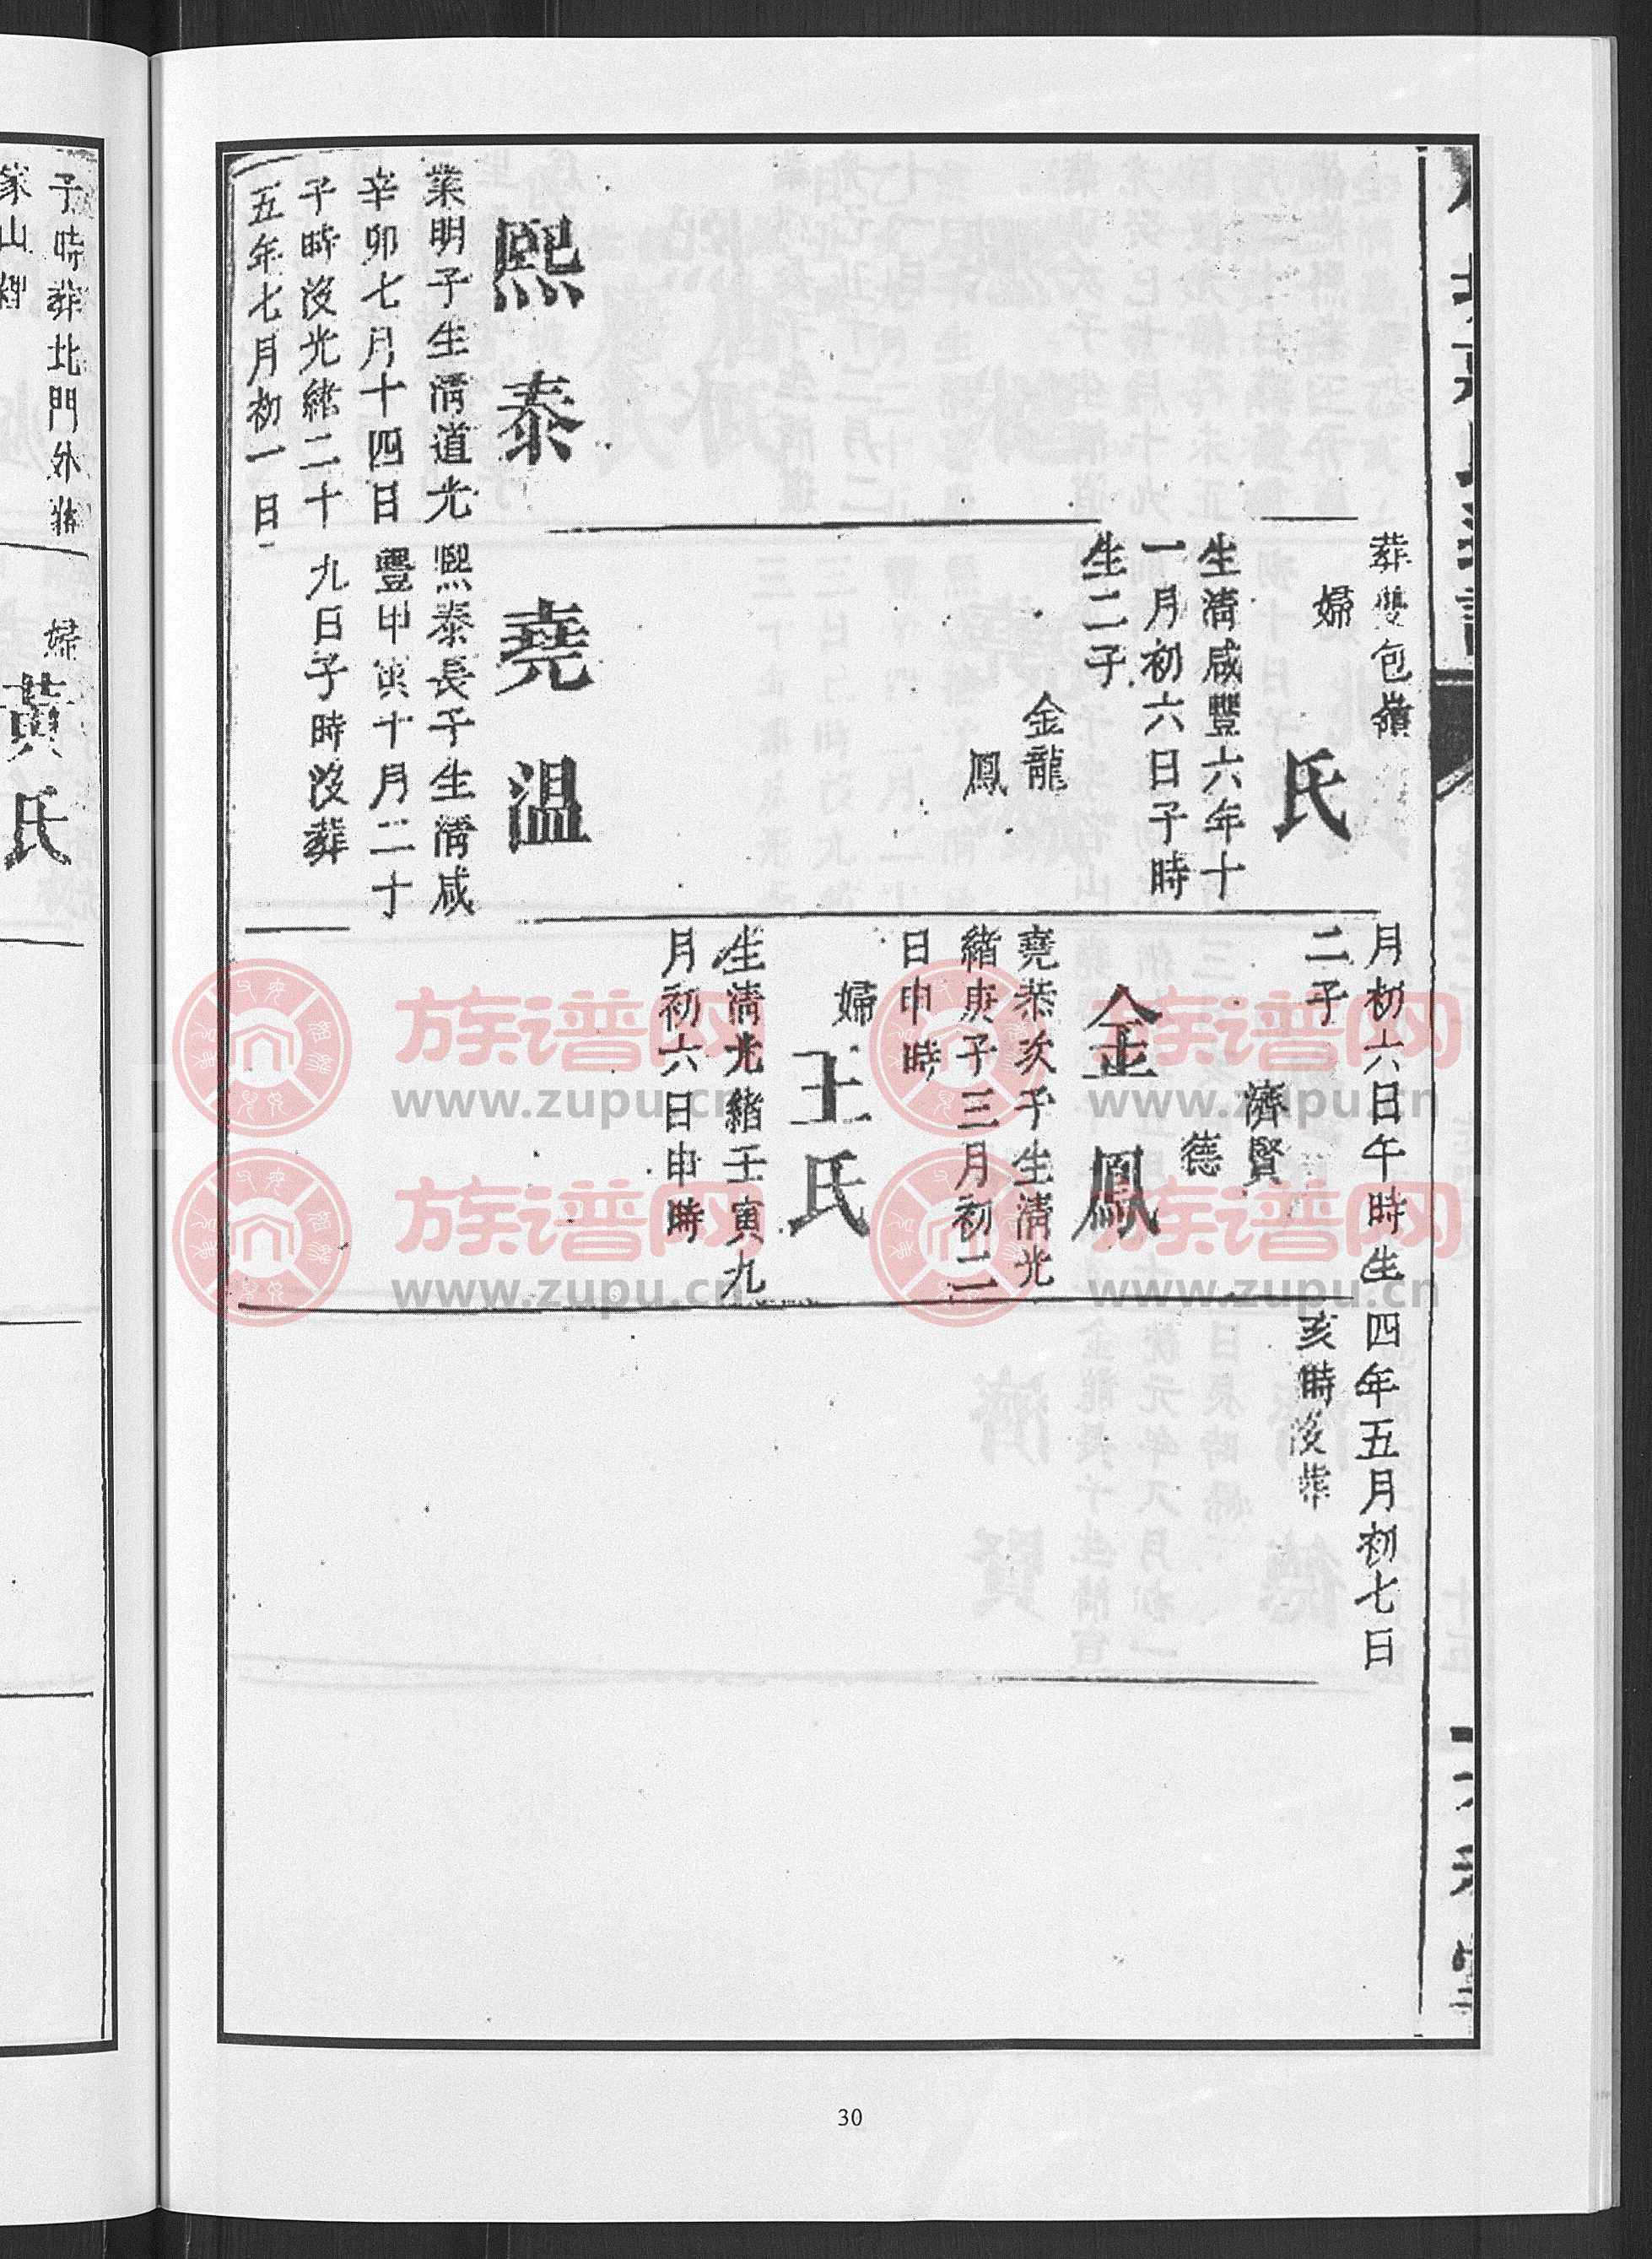 葬雙包嶺
婦
氏
生清咸豐六年十
一月初六日子時
生二子
金龍
鳳
月初六日午時生
二子
濟賢
德
金鳳
堯恭次子生清光
緒庚子三月初二
日申時
婦
王氏
生清光緒壬寅九
月初六日申時
四年五月初七日
亥時沒葬
熙泰
業明子生清道光
辛卯七月十四日
子時沒光緒二十
五年七月初一日
堯溫
熙泰長子生清咸
豐甲寅十月二十
九日子時沒葬
子時葬北門外
家山
婦
黃氏
族谱网
www.zupu.cn
族谱网
www.zupu.cn
族谱网
www.zupu.cn
族谱网
www.zupu.cn
30